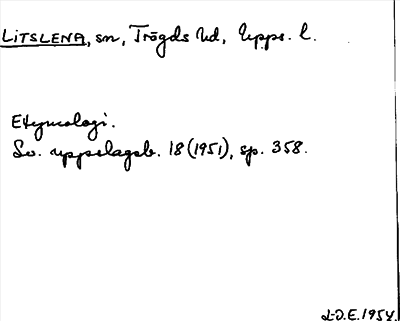 LITSLENA, sn, Trögds hd, Upps. l.
Etymologi.
Sv. uppslagsb. 18 (1951), sp. 358.
L-O.E. 1954.